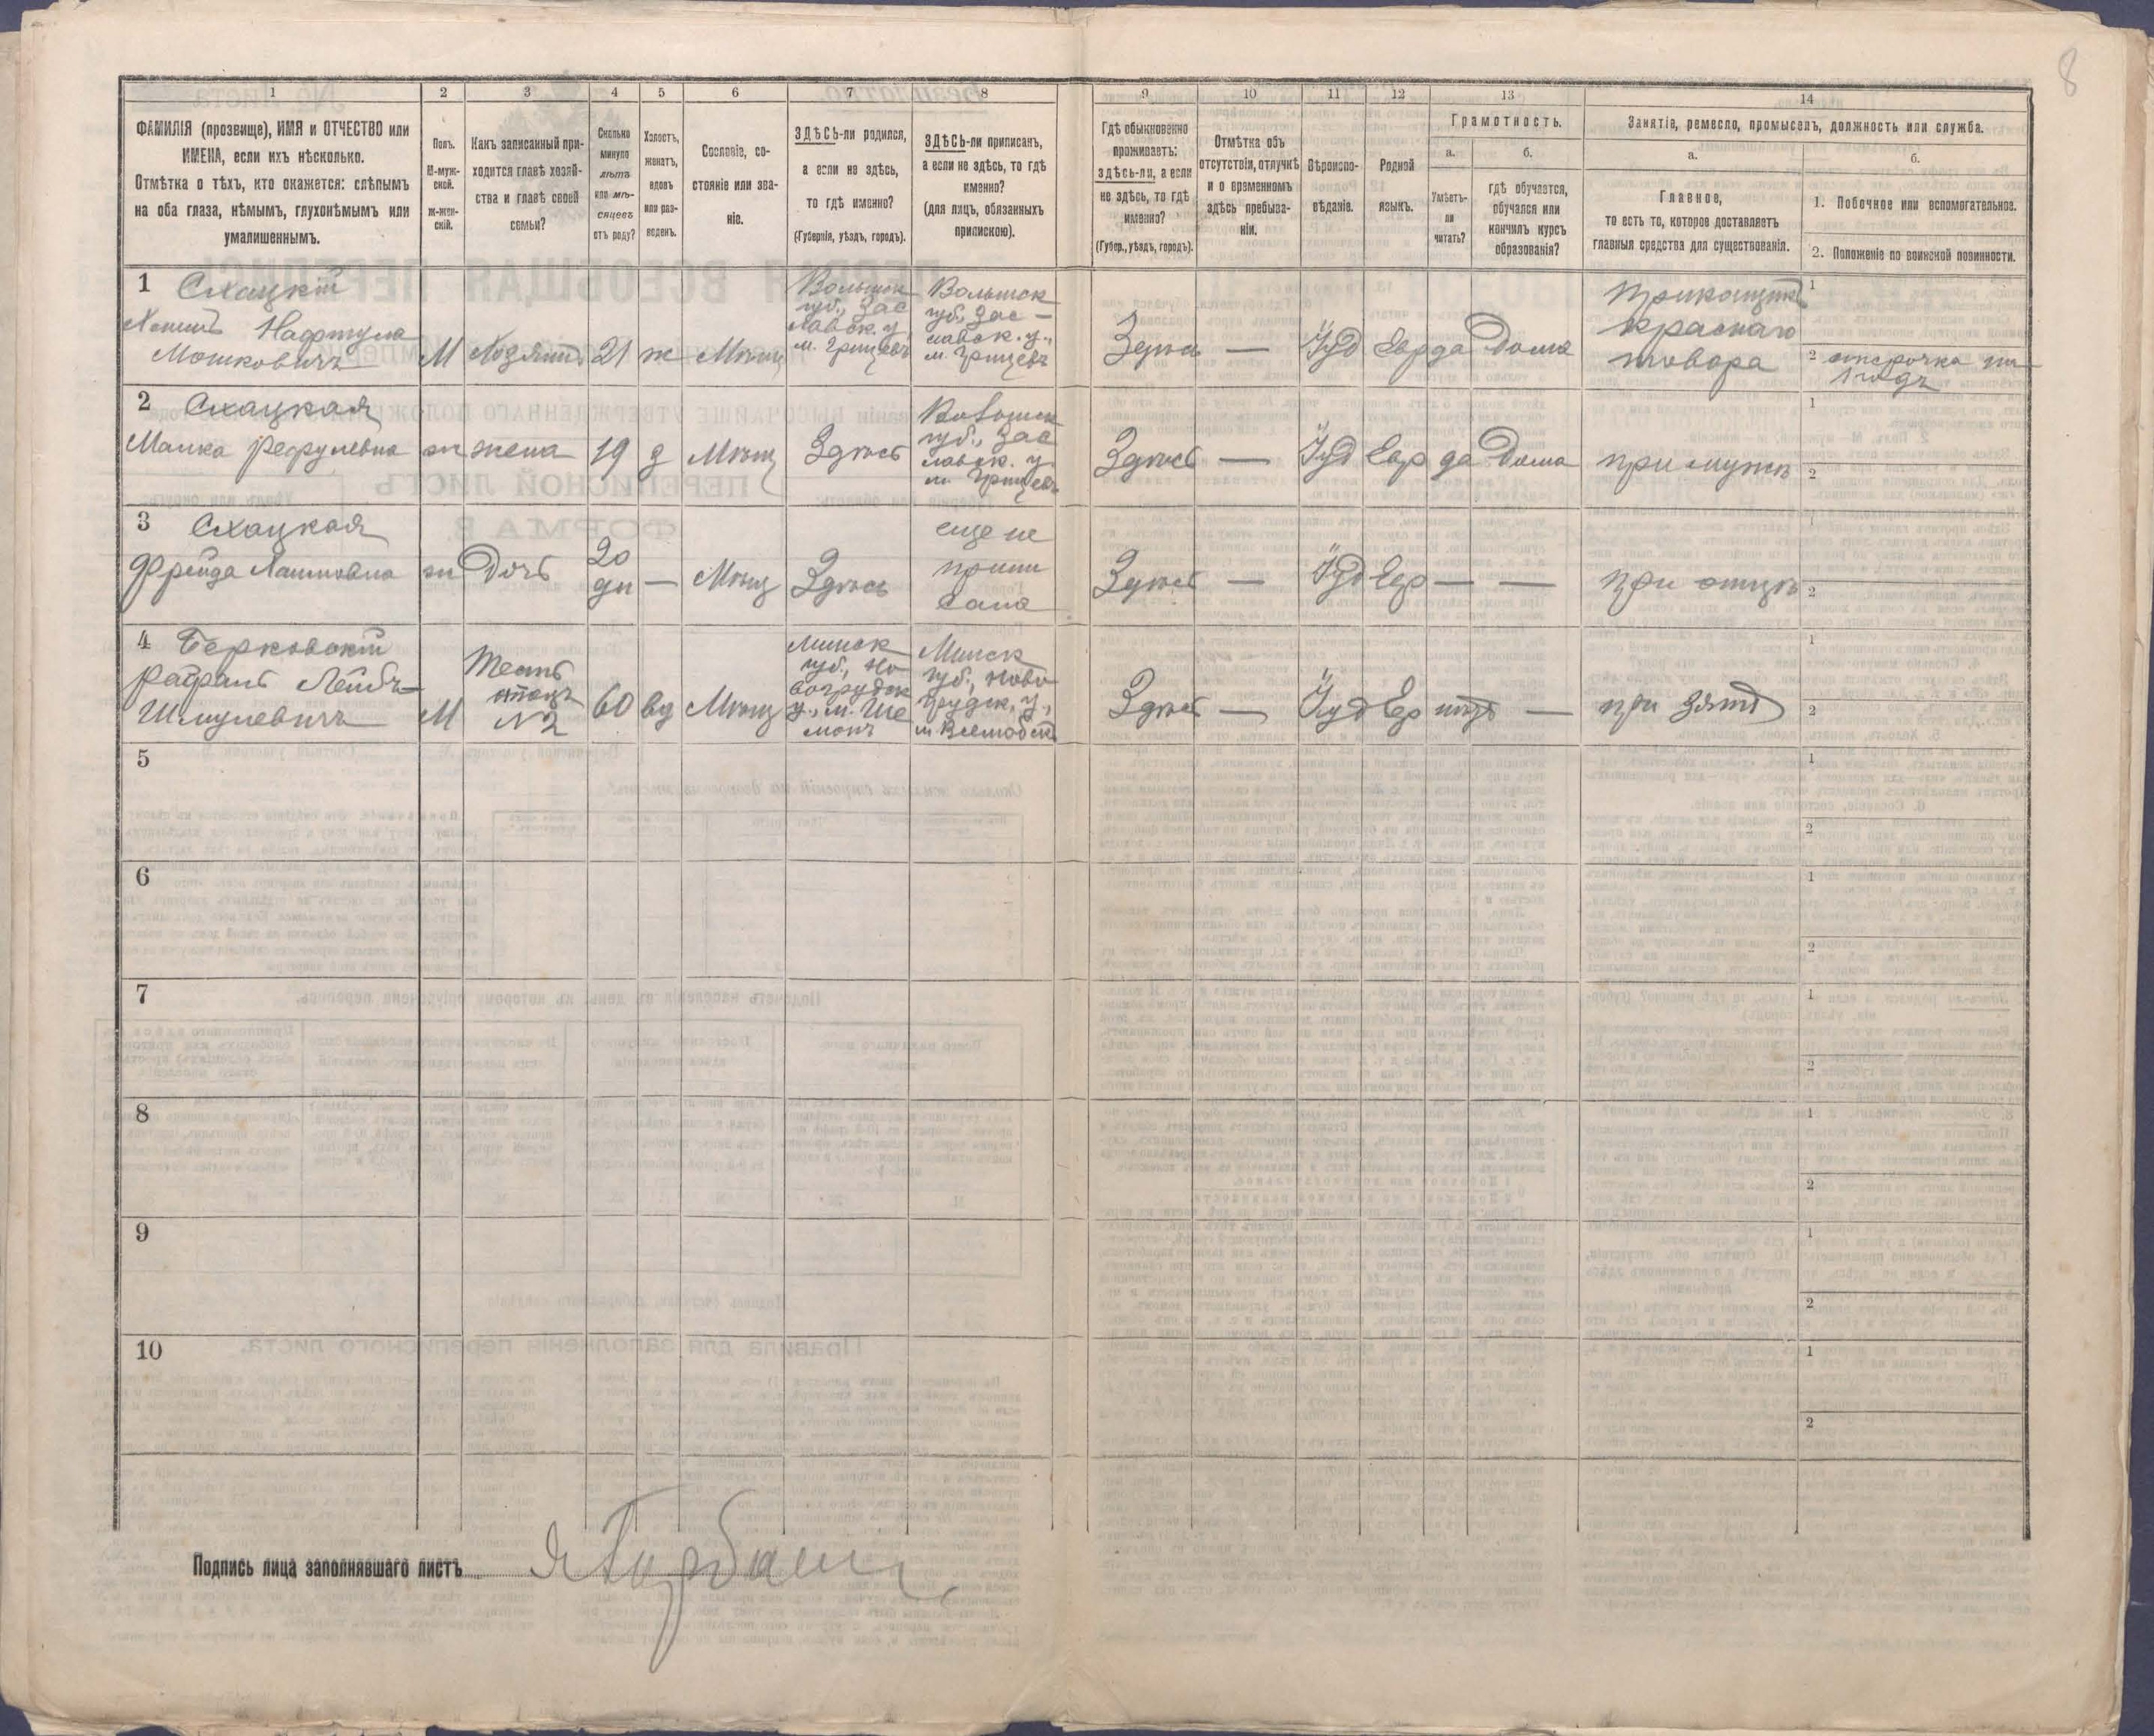 8
1
2
3
4
5
6
7
8
9
10
11
12
13
14
ФАМИЛІЯ (прозвище), ИМЯ и ОТЧЕСТВО или
ИМЕНА, если ихъ нѣсколько.
Отмѣтка о тѣхъ, кто окажется: слѣпымъ
на оба глаза, нѣмымъ, глухонѣмымъ или
умалишеннымъ.
Полъ.
М-муж-
ской.
ж-жен-
скій.
Какъ записанный при-
ходится главѣ хозяй-
ства и главѣ своей
семьи?
Сколько
минуло
лѣтъ
или мѣ-
сяцевъ
отъ роду?
Холостъ,
женатъ,
вдовъ
или раз-
веденъ.
Сословіе, со-
стояніе или зва-
ніе.
ЗДѢСЬ-ли родился,
а если не здѣсь,
то гдѣ именно?
(Губернія, уѣздъ, городъ).
ЗДѢСЬ-ли приписанъ,
а если не здѣсь, то гдѣ
именно?
(для лицъ, обязанныхъ
припискою).
Гдѣ обыкновенно
проживаетъ:
здѣсь-ли, а если
не здѣсь, то гдѣ
именно?
(Губер., уѣздъ, городъ).
Отмѣтка объ
отсутствіи, отлучкѣ
и о временномъ
здѣсь пребыва-
ніи.
Вѣроиспо-
вѣданіе.
Родной
языкъ.
Грамотность.
а.
Умѣетъ-
ли
читать?
б.
гдѣ обучается,
обучался или
кончилъ курсъ
образованія?
Занятіе, ремесло, промыселъ, должность или служба.
а.
Главное,
то есть то, которое доставляетъ
главныя средства для существованія.
б.
1. Побочное или вспомогательное.
2. Положеніе по воинской повинности.
1 Схацкій
Нафтула
Мошковичъ
М
Хозяинъ
21
ж
Мѣщ
Волынск
губ., Зас
лавск. у
м. Грицевъ
Волынск
губ., Зас-
лавск. у.,
м. Грицевъ
—
Іуд
Евр
да
Дома
Прикащикъ
краснаго
товара
1
2 отсрочка на
1 годъ
2 Схацкая
Малка Рефулевна
ж
жена
19
з
Мѣщ
Здѣсь
Волынск
губ., Зас
лавск. у.
м. Грицевъ
Здѣсь
—
Іуд
Евр
да
Дома
при мужѣ
1
2
3 Схацкая
Фрейда Хаимовна
ж
Дочь
20
дн
—
Мѣщ
Здѣсь
еще не
припи
сана
Здѣсь
—
Іуд
Евр
—
—
при отцѣ
1
2
4 Берковскій
Рафаилъ Лейбъ-
Шмулевичъ
М
Тесть
отецъ
N2
60
вд
Мѣщ
Минск
губ., Но
вогрудск
у., м.
Минск
губ., Ново
грудск. у.,
м.
Здѣсь
—
Іуд
Евр
нѣтъ
—
при зятѣ
1
2
5
1
2
6
1
2
7
1
2
8
1
2
9
1
2
10
1
2
Подпись лица заполнявшаго листъ